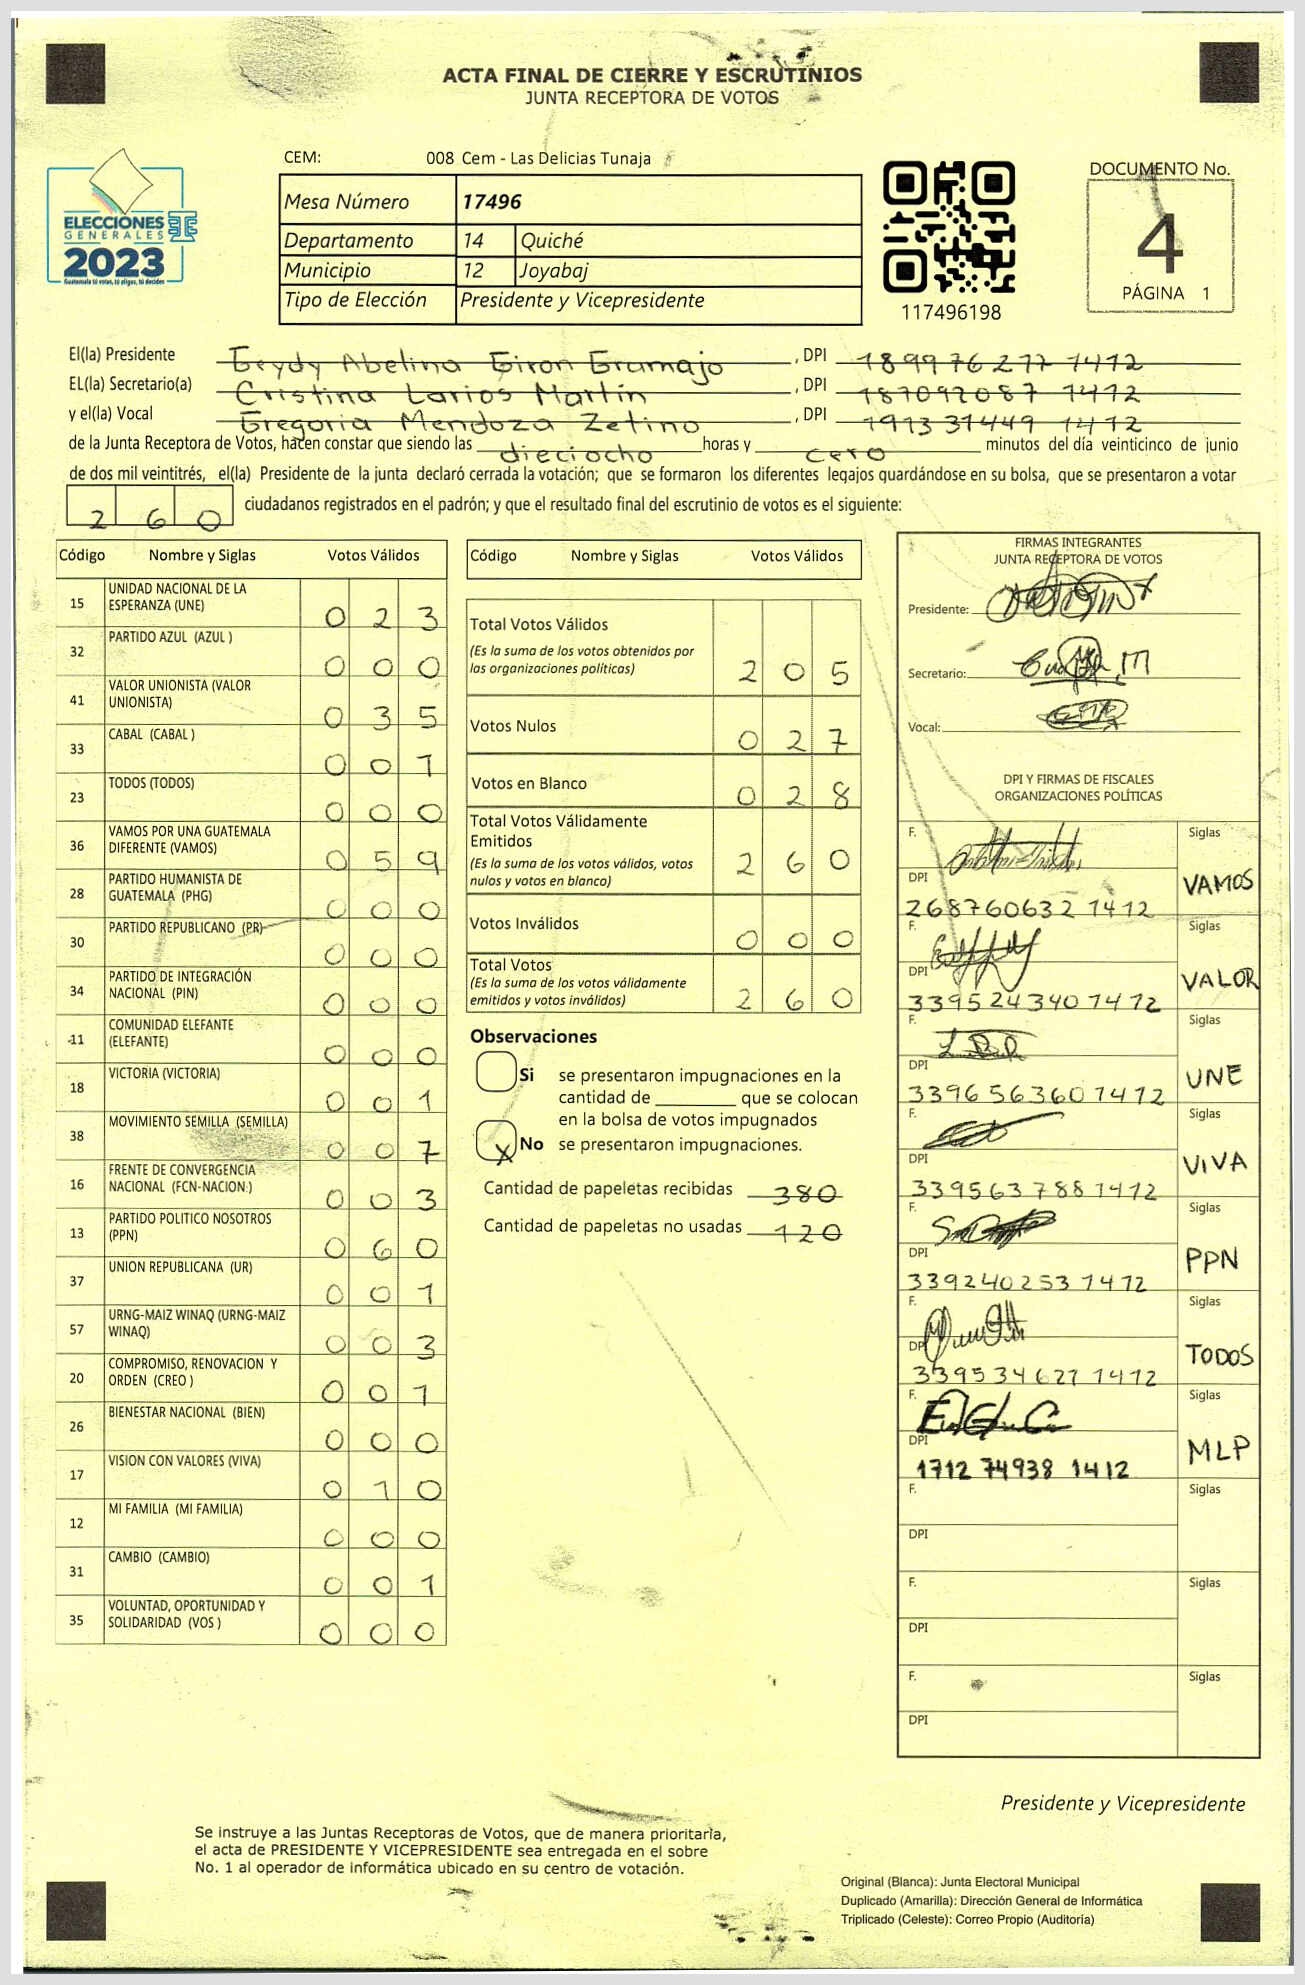 ACTA FINAL DE CIERRE Y ESCRUTINIOS
JUNTA RECEPTORA DE VOTOS
CEM: 008 Cem - Las Delicias Tunaja
ELECCIONES
GENERALES
2023
Guatemala tú votas, tú eliges, tú decides
Mesa Número 17496
Departamento 14 Quiché
Municipio 12 Joyabaj
Tipo de Elección Presidente y Vicepresidente
117496198
DOCUMENTO No.
4
PÁGINA 1
El(la) Presidente Greydy Abelina Giron Gramajo, DPI 189976277 1412
EL(la) Secretario(a) Cristina Larios Martín, DPI 187092087 1412
y el(la) Vocal Gregoria Mendoza Zetino, DPI 191331449 1412
de la Junta Receptora de Votos, hacen constar que siendo las dieciocho horas y cero minutos del día veinticinco de junio
de dos mil veintitrés, el(la) Presidente de la junta declaró cerrada la votación; que se formaron los diferentes legajos quardándose en su bolsa, que se presentaron a votar
260 ciudadanos registrados en el padrón; y que el resultado final del escrutinio de votos es el siguiente:
Código Nombre y Siglas Votos Válidos
15 UNIDAD NACIONAL DE LA
ESPERANZA (UNE) 0 2 3
32 PARTIDO AZUL (AZUL ) 0 0 0
41 VALOR UNIONISTA (VALOR
UNIONISTA) 0 3 5
33 CABAL (CABAL ) 0 0 1
23 TODOS (TODOS) 0 0 0
36 VAMOS POR UNA GUATEMALA
DIFERENTE (VAMOS) 0 5 9
28 PARTIDO HUMANISTA DE
GUATEMALA (PHG) 0 0 0
30 PARTIDO REPUBLICANO (PR) 0 0 0
34 PARTIDO DE INTEGRACIÓN
NACIONAL (PIN) 0 0 0
11 COMUNIDAD ELEFANTE
(ELEFANTE) 0 0 0
18 VICTORIA (VICTORIA) 0 0 1
38 MOVIMIENTO SEMILLA (SEMILLA) 0 0 7
16 FRENTE DE CONVERGENCIA
NACIONAL (FCN-NACION.) 0 0 3
13 PARTIDO POLITICO NOSOTROS
(PPN) 0 6 0
37 UNION REPUBLICANA (UR) 0 0 1
57 URNG-MAIZ WINAQ (URNG-MAIZ
WINAQ) 0 0 3
20 COMPROMISO, RENOVACION Y
ORDEN (CREO ) 0 0 1
26 BIENESTAR NACIONAL (BIEN) 0 0 0
17 VISION CON VALORES (VIVA) 0 1 0
12 MI FAMILIA (MI FAMILIA) 0 0 0
31 CAMBIO (CAMBIO) 0 0 1
35 VOLUNTAD, OPORTUNIDAD Y
SOLIDARIDAD (VOS ) 0 0 0
Código Nombre y Siglas Votos Válidos
Total Votos Válidos
(Es la suma de los votos obtenidos por
las organizaciones políticas) 2 0 5
Votos Nulos 0 2 7
Votos en Blanco 0 2 8
Total Votos Válidamente
Emitidos
(Es la suma de los votos válidos, votos
nulos y votos en blanco) 2 6 0
Votos Inválidos 0 0 0
Total Votos
(Es la suma de los votos válidamente
emitidos y votos inválidos) 2 6 0
Observaciones
Si se presentaron impugnaciones en la
cantidad de ________ que se colocan
en la bolsa de votos impugnados
X No se presentaron impugnaciones.
Cantidad de papeletas recibidas 380
Cantidad de papeletas no usadas 120
FIRMAS INTEGRANTES
JUNTA RECEPTORA DE VOTOS
Presidente:
Secretario:
Vocal:
DPI Y FIRMAS DE FISCALES
ORGANIZACIONES POLÍTICAS
F. Siglas
DPI VAMOS
268760632 1412
F. Siglas
DPI VALOR
339524340 1412
F. Siglas
DPI UNE
339656360 1412
F. Siglas
DPI VIVA
339563788 1412
F. Siglas
DPI PPN
339240253 1412
F. Siglas
DPI TODOS
339534627 1412
F. Siglas
DPI MLP
1712 74938 1412
F. Siglas
DPI
F. Siglas
DPI
F. Siglas
DPI
Presidente y Vicepresidente
Se instruye a las Juntas Receptoras de Votos, que de manera prioritaria,
el acta de PRESIDENTE Y VICEPRESIDENTE sea entregada en el sobre
No. 1 al operador de informática ubicado en su centro de votación.
Original (Blanca): Junta Electoral Municipal
Duplicado (Amarilla): Dirección General de Informática
Triplicado (Celeste): Correo Propio (Auditoría)